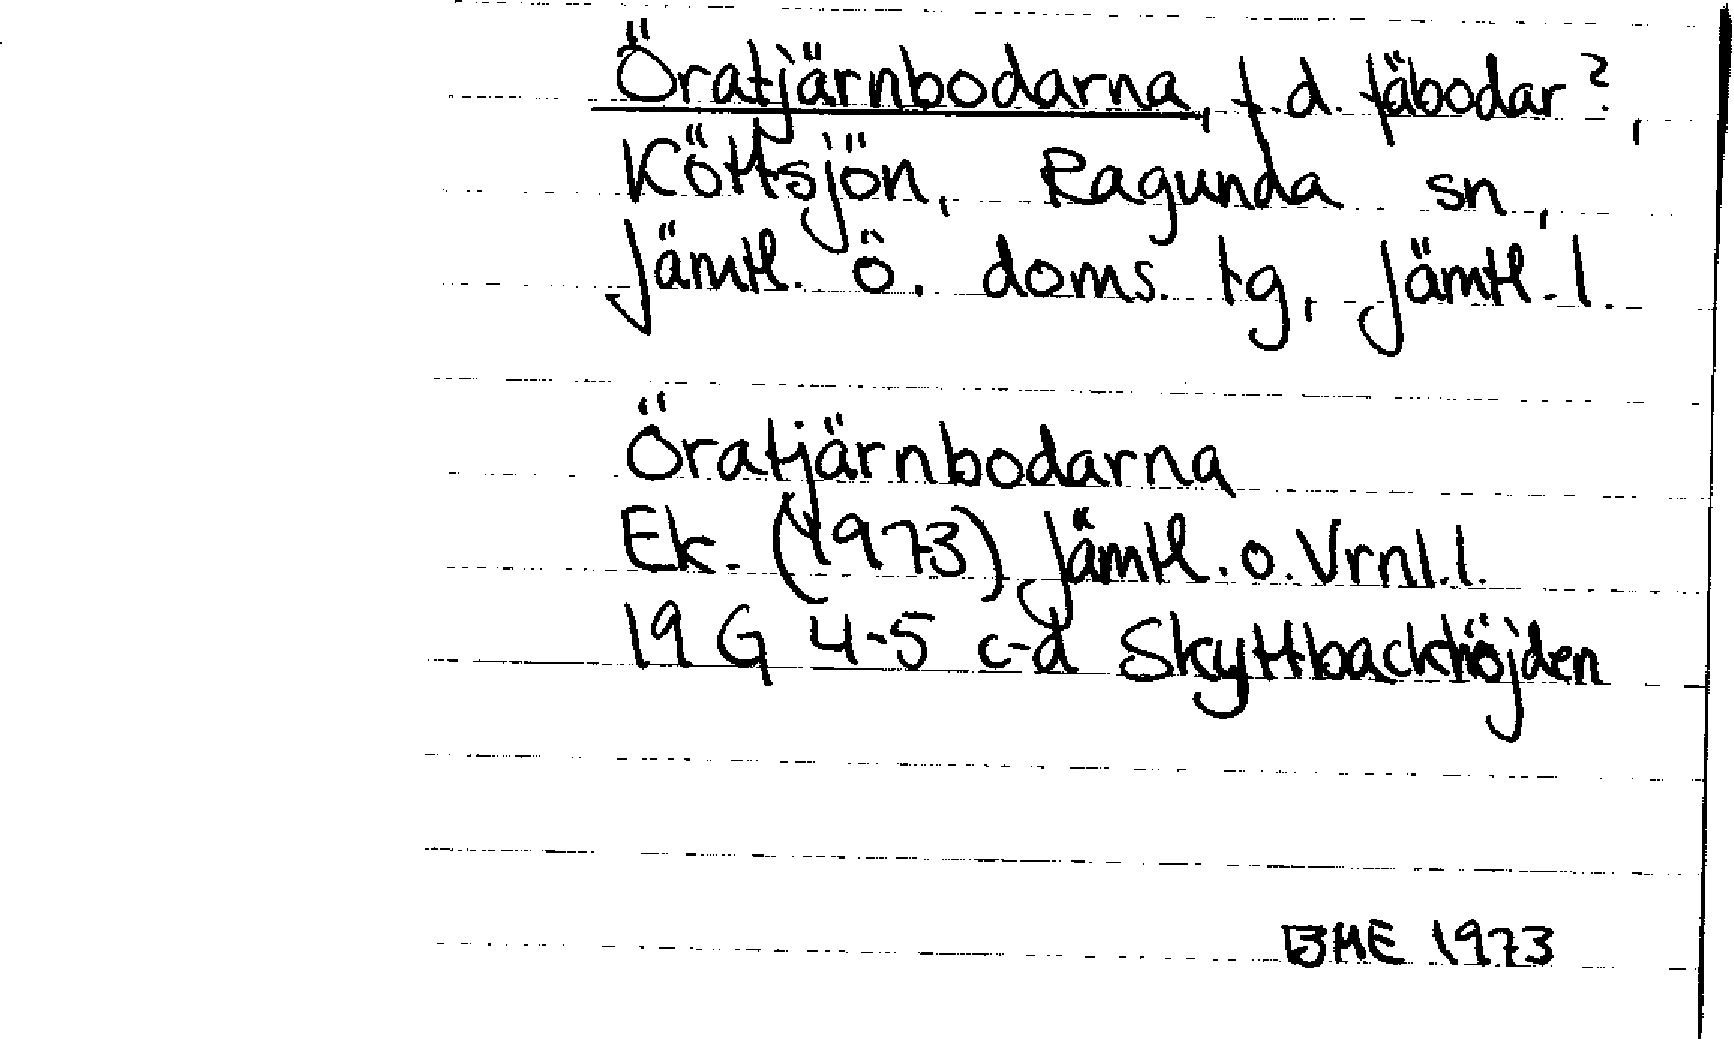 Öratjärnbodarna, f.d. fäbodar?,
Köttsjön, Ragunda sn,
Jämtl. ö. doms. tg, Jämtl. l.
Öratjärnbodarna
Ek. (1973) Jämtl. o. Vrnl. l.
19 G 4-5 c-d Skyttbackhöjden
1973